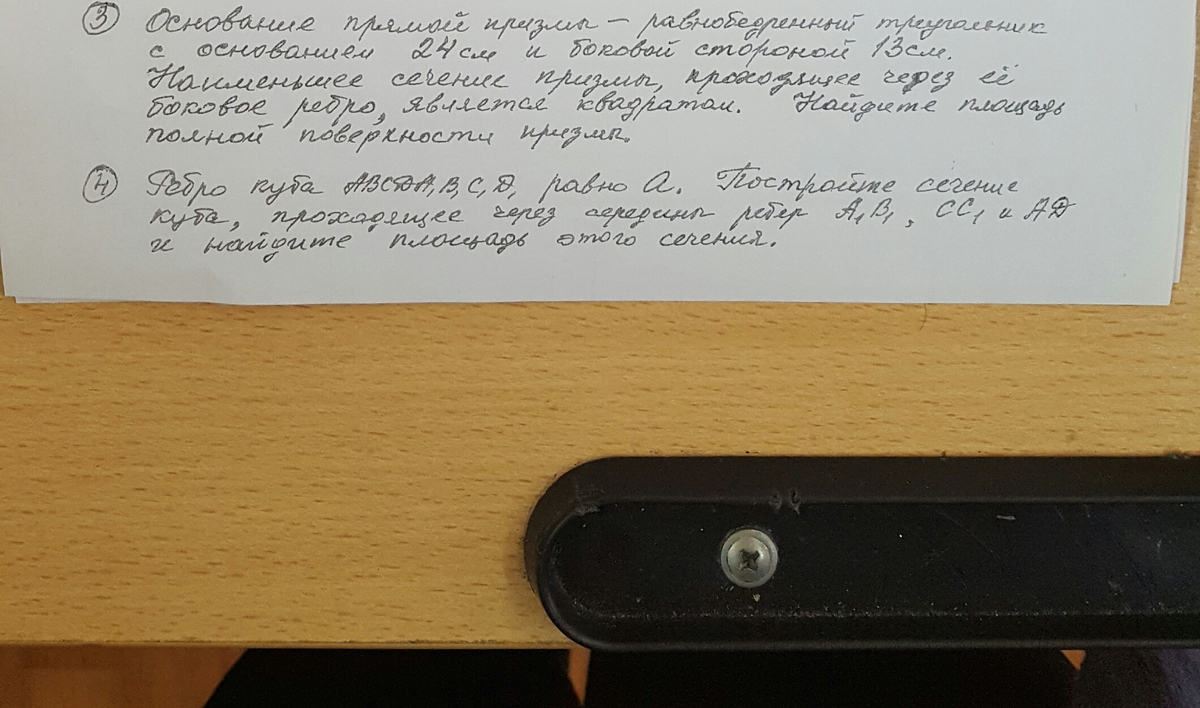 ③ Основание прямой призмы – равнобедренный треугольник
с основанием 24 см и боковой стороной 13 см.
Наименьшее сечение призмы, проходящее через её
боковое ребро, является квадратом. Найдите площадь
полной поверхности призмы.
④ Ребро куба ABCDA₁B₁C₁D₁ равно a. Постройте сечение
куба, проходящее через середины ребер A₁B₁, CC₁ и AD
и найдите площадь этого сечения.